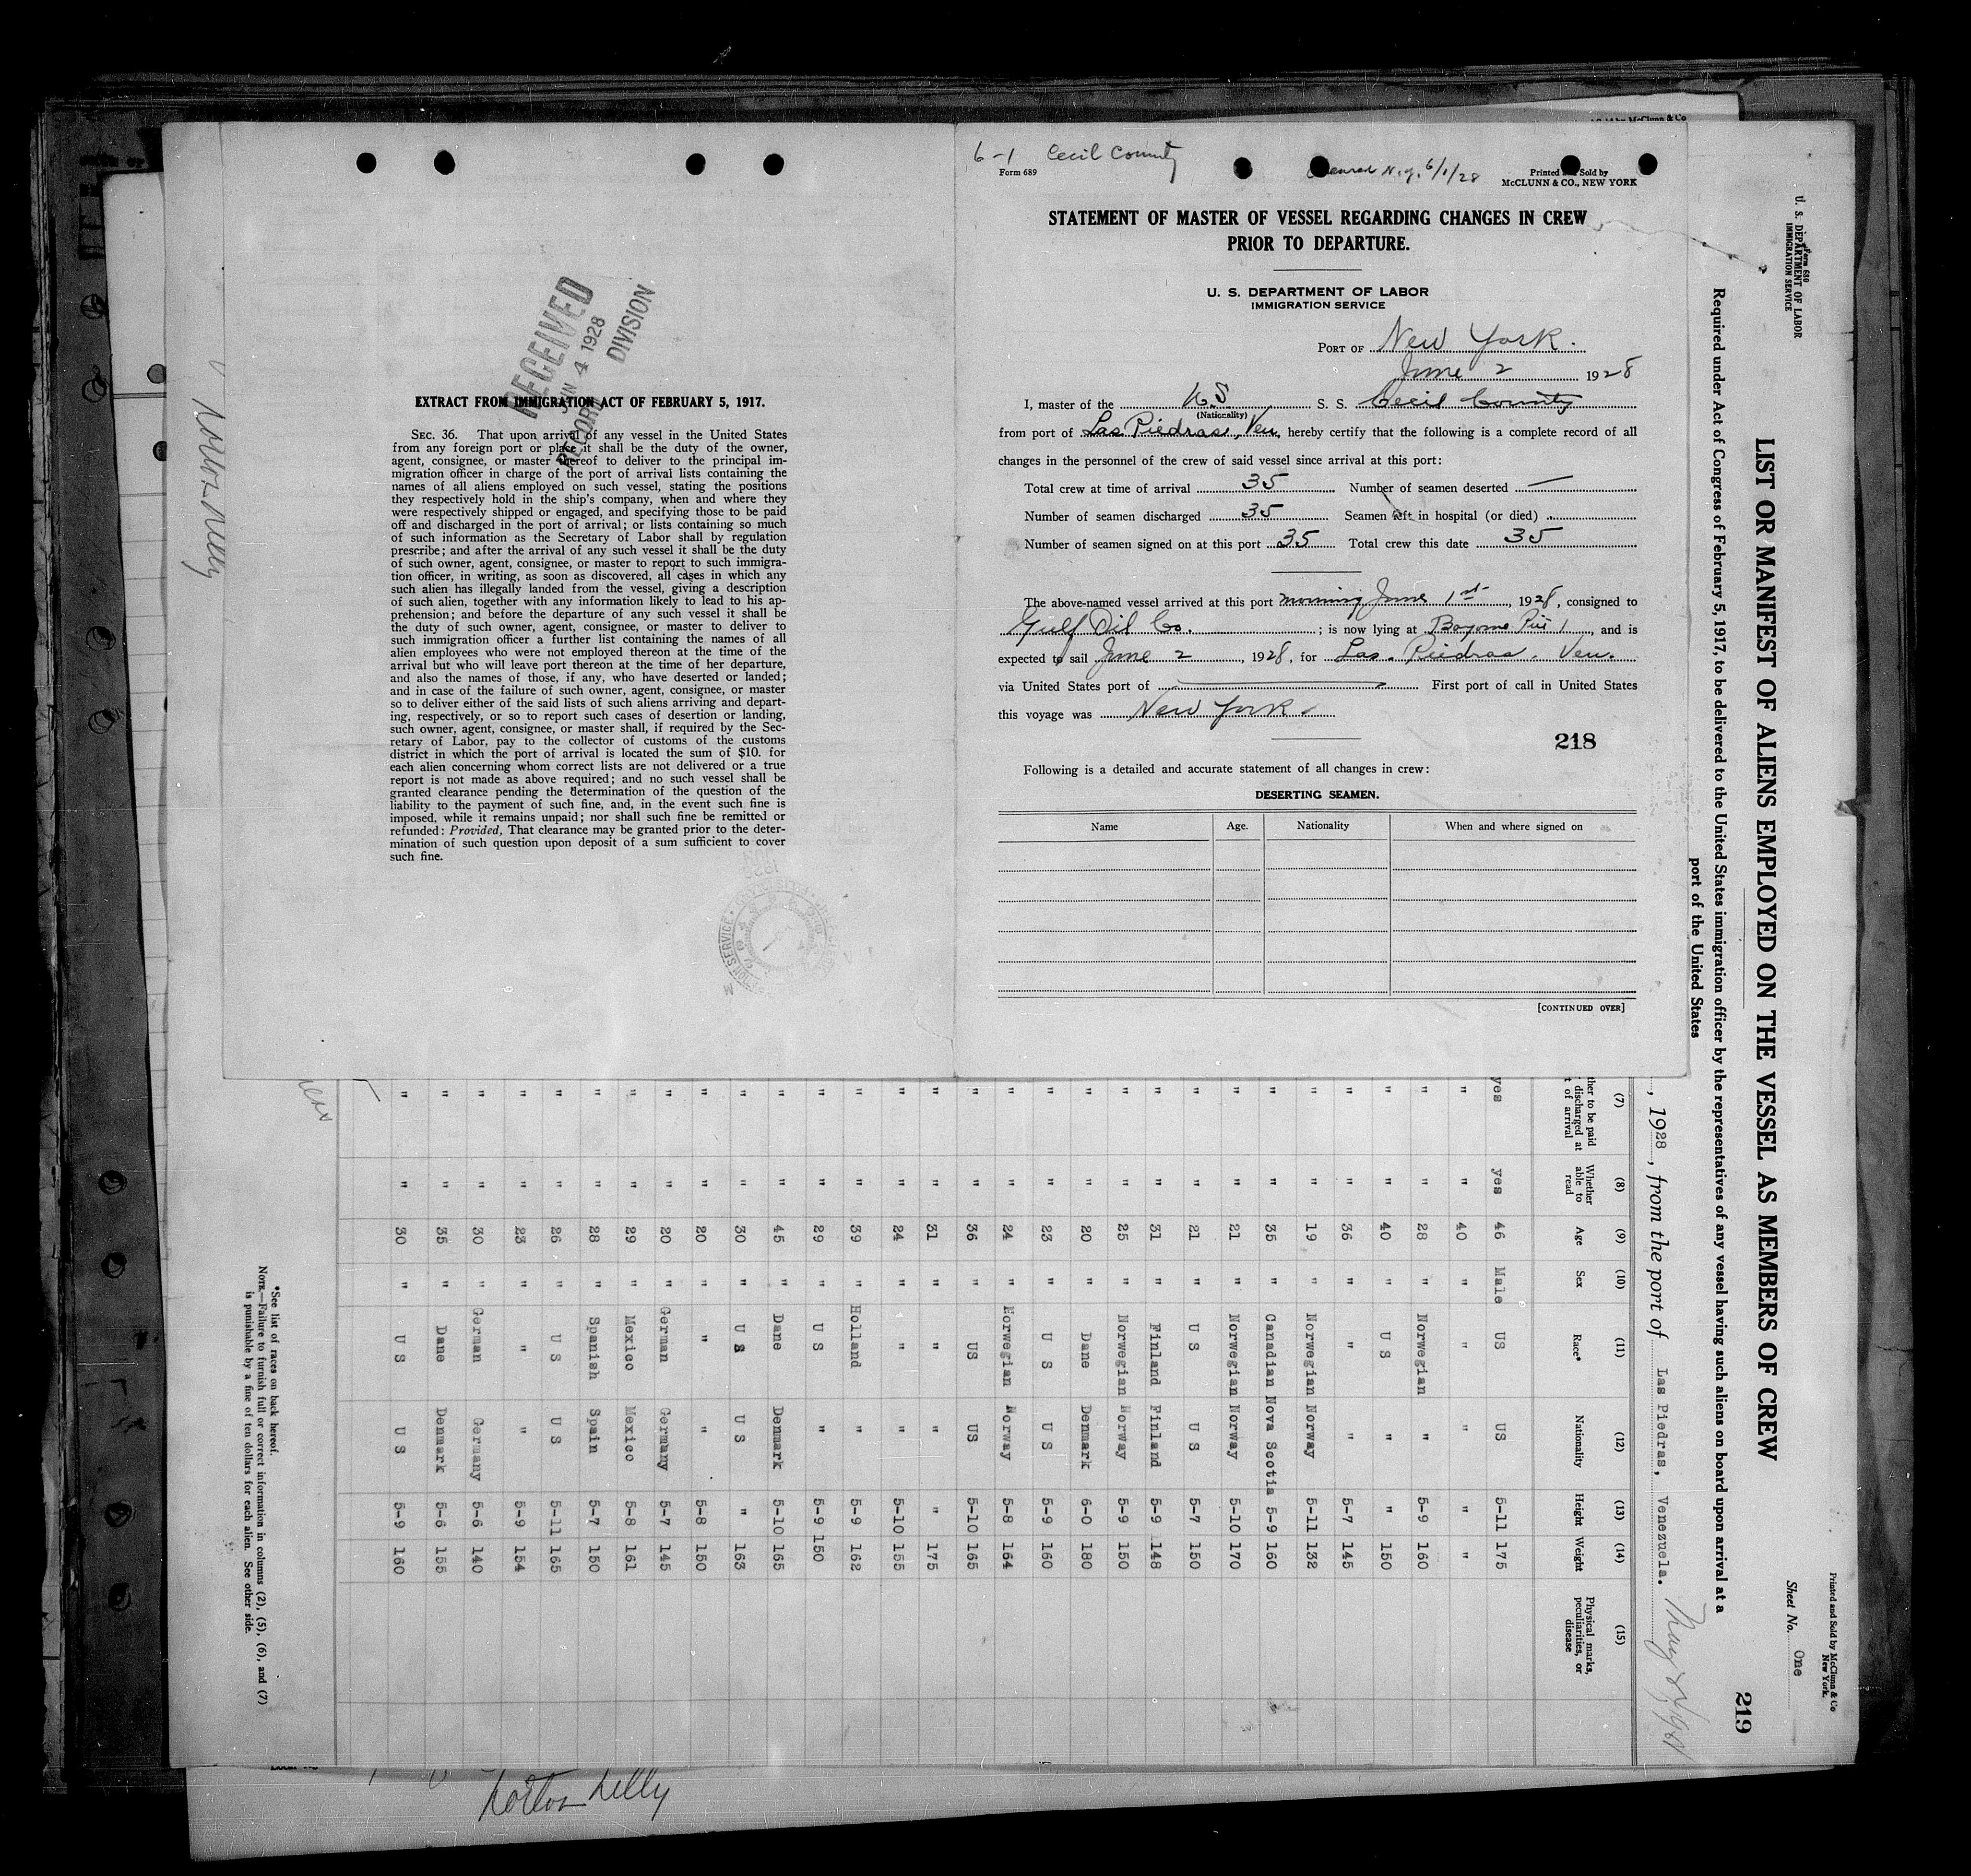 6-1 Cecil County
Form 689
Cleared N.Y. 6/1/28
Printed and Sold by
McCLUNN & CO., NEW YORK
STATEMENT OF MASTER OF VESSEL REGARDING CHANGES IN CREW
PRIOR TO DEPARTURE.
U. S. DEPARTMENT OF LABOR
IMMIGRATION SERVICE
PORT OF New York.
June 2 1928
I, master of the US S. S. Cecil County
(Nationality)
from port of Las Piedras, Ven, hereby certify that the following is a complete record of all
changes in the personnel of the crew of said vessel since arrival at this port:
Total crew at time of arrival 35 Number of seamen deserted —
Number of seamen discharged 35 Seamen left in hospital (or died)
Number of seamen signed on at this port 35 Total crew this date 35
The above-named vessel arrived at this port morning June 1st, 1928, consigned to
Gulf Oil Co. ; is now lying at Bayonne Pier 1, and is
expected to sail June 2, 1928, for Las. Piedras. Ven.
via United States port of — First port of call in United States
this voyage was New York
218
Following is a detailed and accurate statement of all changes in crew:
DESERTING SEAMEN.
Name Age. Nationality When and where signed on
[CONTINUED OVER]
RECEIVED
JUN 4 1928
RECORD DIVISION
EXTRACT FROM IMMIGRATION ACT OF FEBRUARY 5, 1917.
SEC. 36. That upon arrival of any vessel in the United States
from any foreign port or place it shall be the duty of the owner,
agent, consignee, or master thereof to deliver to the principal im-
migration officer in charge of the port of arrival lists containing the
names of all aliens employed on such vessel, stating the positions
they respectively hold in the ship's company, when and where they
were respectively shipped or engaged, and specifying those to be paid
off and discharged in the port of arrival; or lists containing so much
of such information as the Secretary of Labor shall by regulation
prescribe; and after the arrival of any such vessel it shall be the duty
of such owner, agent, consignee, or master to report to such immigra-
tion officer, in writing, as soon as discovered, all cases in which any
such alien has illegally landed from the vessel, giving a description
of such alien, together with any information likely to lead to his ap-
prehension; and before the departure of any such vessel it shall be
the duty of such owner, agent, consignee, or master to deliver to
such immigration officer a further list containing the names of all
alien employees who were not employed thereon at the time of the
arrival but who will leave port thereon at the time of her departure,
and also the names of those, if any, who have deserted or landed;
and in case of the failure of such owner, agent, consignee, or master
so to deliver either of the said lists of such aliens arriving and depart-
ing, respectively, or so to report such cases of desertion or landing,
such owner, agent, consignee, or master shall, if required by the Sec-
retary of Labor, pay to the collector of customs of the customs
district in which the port of arrival is located the sum of $10. for
each alien concerning whom correct lists are not delivered or a true
report is not made as above required; and no such vessel shall be
granted clearance pending the determination of the question of the
liability to the payment of such fine, and, in the event such fine is
imposed, while it remains unpaid; nor shall such fine be remitted or
refunded: Provided, That clearance may be granted prior to the deter-
mination of such question upon deposit of a sum sufficient to cover
such fine.
Form 680
U. S. DEPARTMENT OF LABOR
IMMIGRATION SERVICE
Printed and Sold by McClunn & Co
New York.
Sheet No. One
219
LIST OR MANIFEST OF ALIENS EMPLOYED ON THE VESSEL AS MEMBERS OF CREW
Required under Act of Congress of February 5, 1917, to be delivered to the United States immigration officer by the representatives of any vessel having such aliens on board upon arrival at a
port of the United States
, 1928, from the port of Las Piedras, Venezuela.
(7) (8) (9) (10) (11) (12) (13) (14) (15)
ther to be paid discharged at of arrival Whether able to read Age Sex Race* Nationality Height Weight Physical marks, peculiarities, or disease
yes yes 46 Male US US 5-11 175
" " 40 " " " " "
" " 28 " Norwegian " 5-9 160
" " 40 " U S " " 150
" " 36 " " " 5-7 145
" " 19 " Norwegian Norway 5-11 132
" " 35 " Canadian Nova Scotia 5-9 160
" " 21 " Norwegian Norway 5-10 170
" " 21 " U S U S 5-7 150
" " 31 " Finland Finland 5-9 148
" " 25 " Norwegian Norway 5-9 150
" " 20 " Dane Denmark 6-0 180
" " 23 " U S U S 5-9 160
" " 24 " Norwegian Norway 5-8 164
" " 36 " US US 5-10 165
" " 31 " " " " 175
" " 24 " " " 5-10 155
" " 39 " Holland " 5-9 162
" " 29 " U S " 5-9 150
" " 45 " Dane Denmark 5-10 165
" " 30 " U S U S " 163
" " 20 " " " 5-8 150
" " 20 " German Germany 5-7 145
" " 29 " Mexico Mexico 5-8 161
" " 28 " Spanish Spain 5-7 150
" " 26 " U S U S 5-11 165
" " 23 " " " 5-9 154
" " 30 " German Germany 5-6 140
" " 35 " Dane Denmark 5-6 155
" " 30 " U S U S 5-9 160
*See list of races on back hereof.
NOTE.—Failure to furnish full or correct information in columns (2), (5), (6), and (7)
is punishable by a fine of ten dollars for each alien. See other side.
Norton Lilly
Norton Lilly